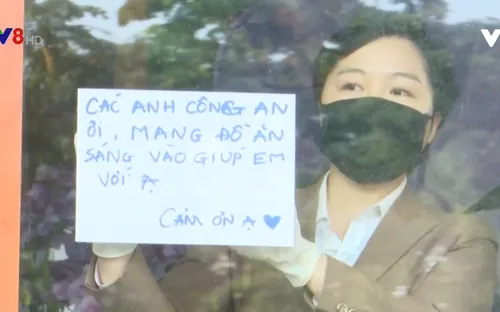 V8 HD
CÁC ANH CÔNG AN
ƠI, MANG ĐỒ ĂN
SÁNG VÀO GIÚP EM
VỚI Ạ
CẢM ƠN Ạ ♥